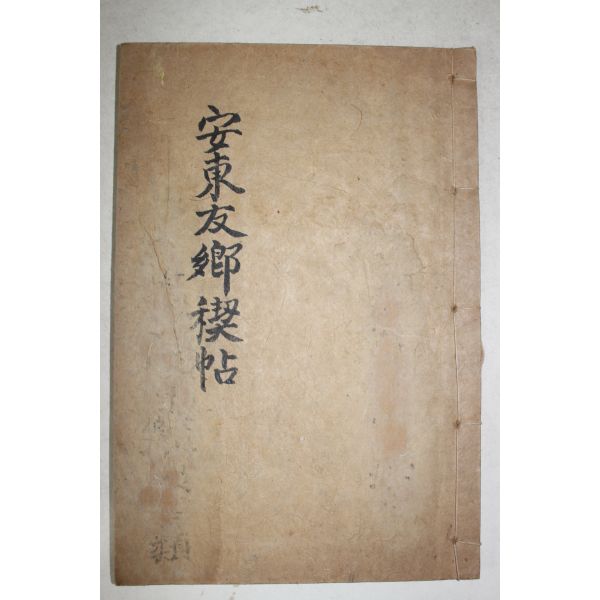 安東友鄉稧帖